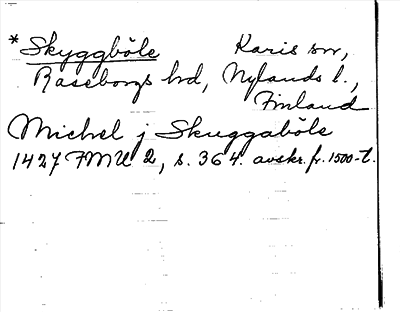 *Skyggböle Karis sn,
Raseborgs hd, Nylands l.,
Finland
Michel j Skuggaböle
1427 FMU 2, s. 364. avskr. fr. 1500-t.